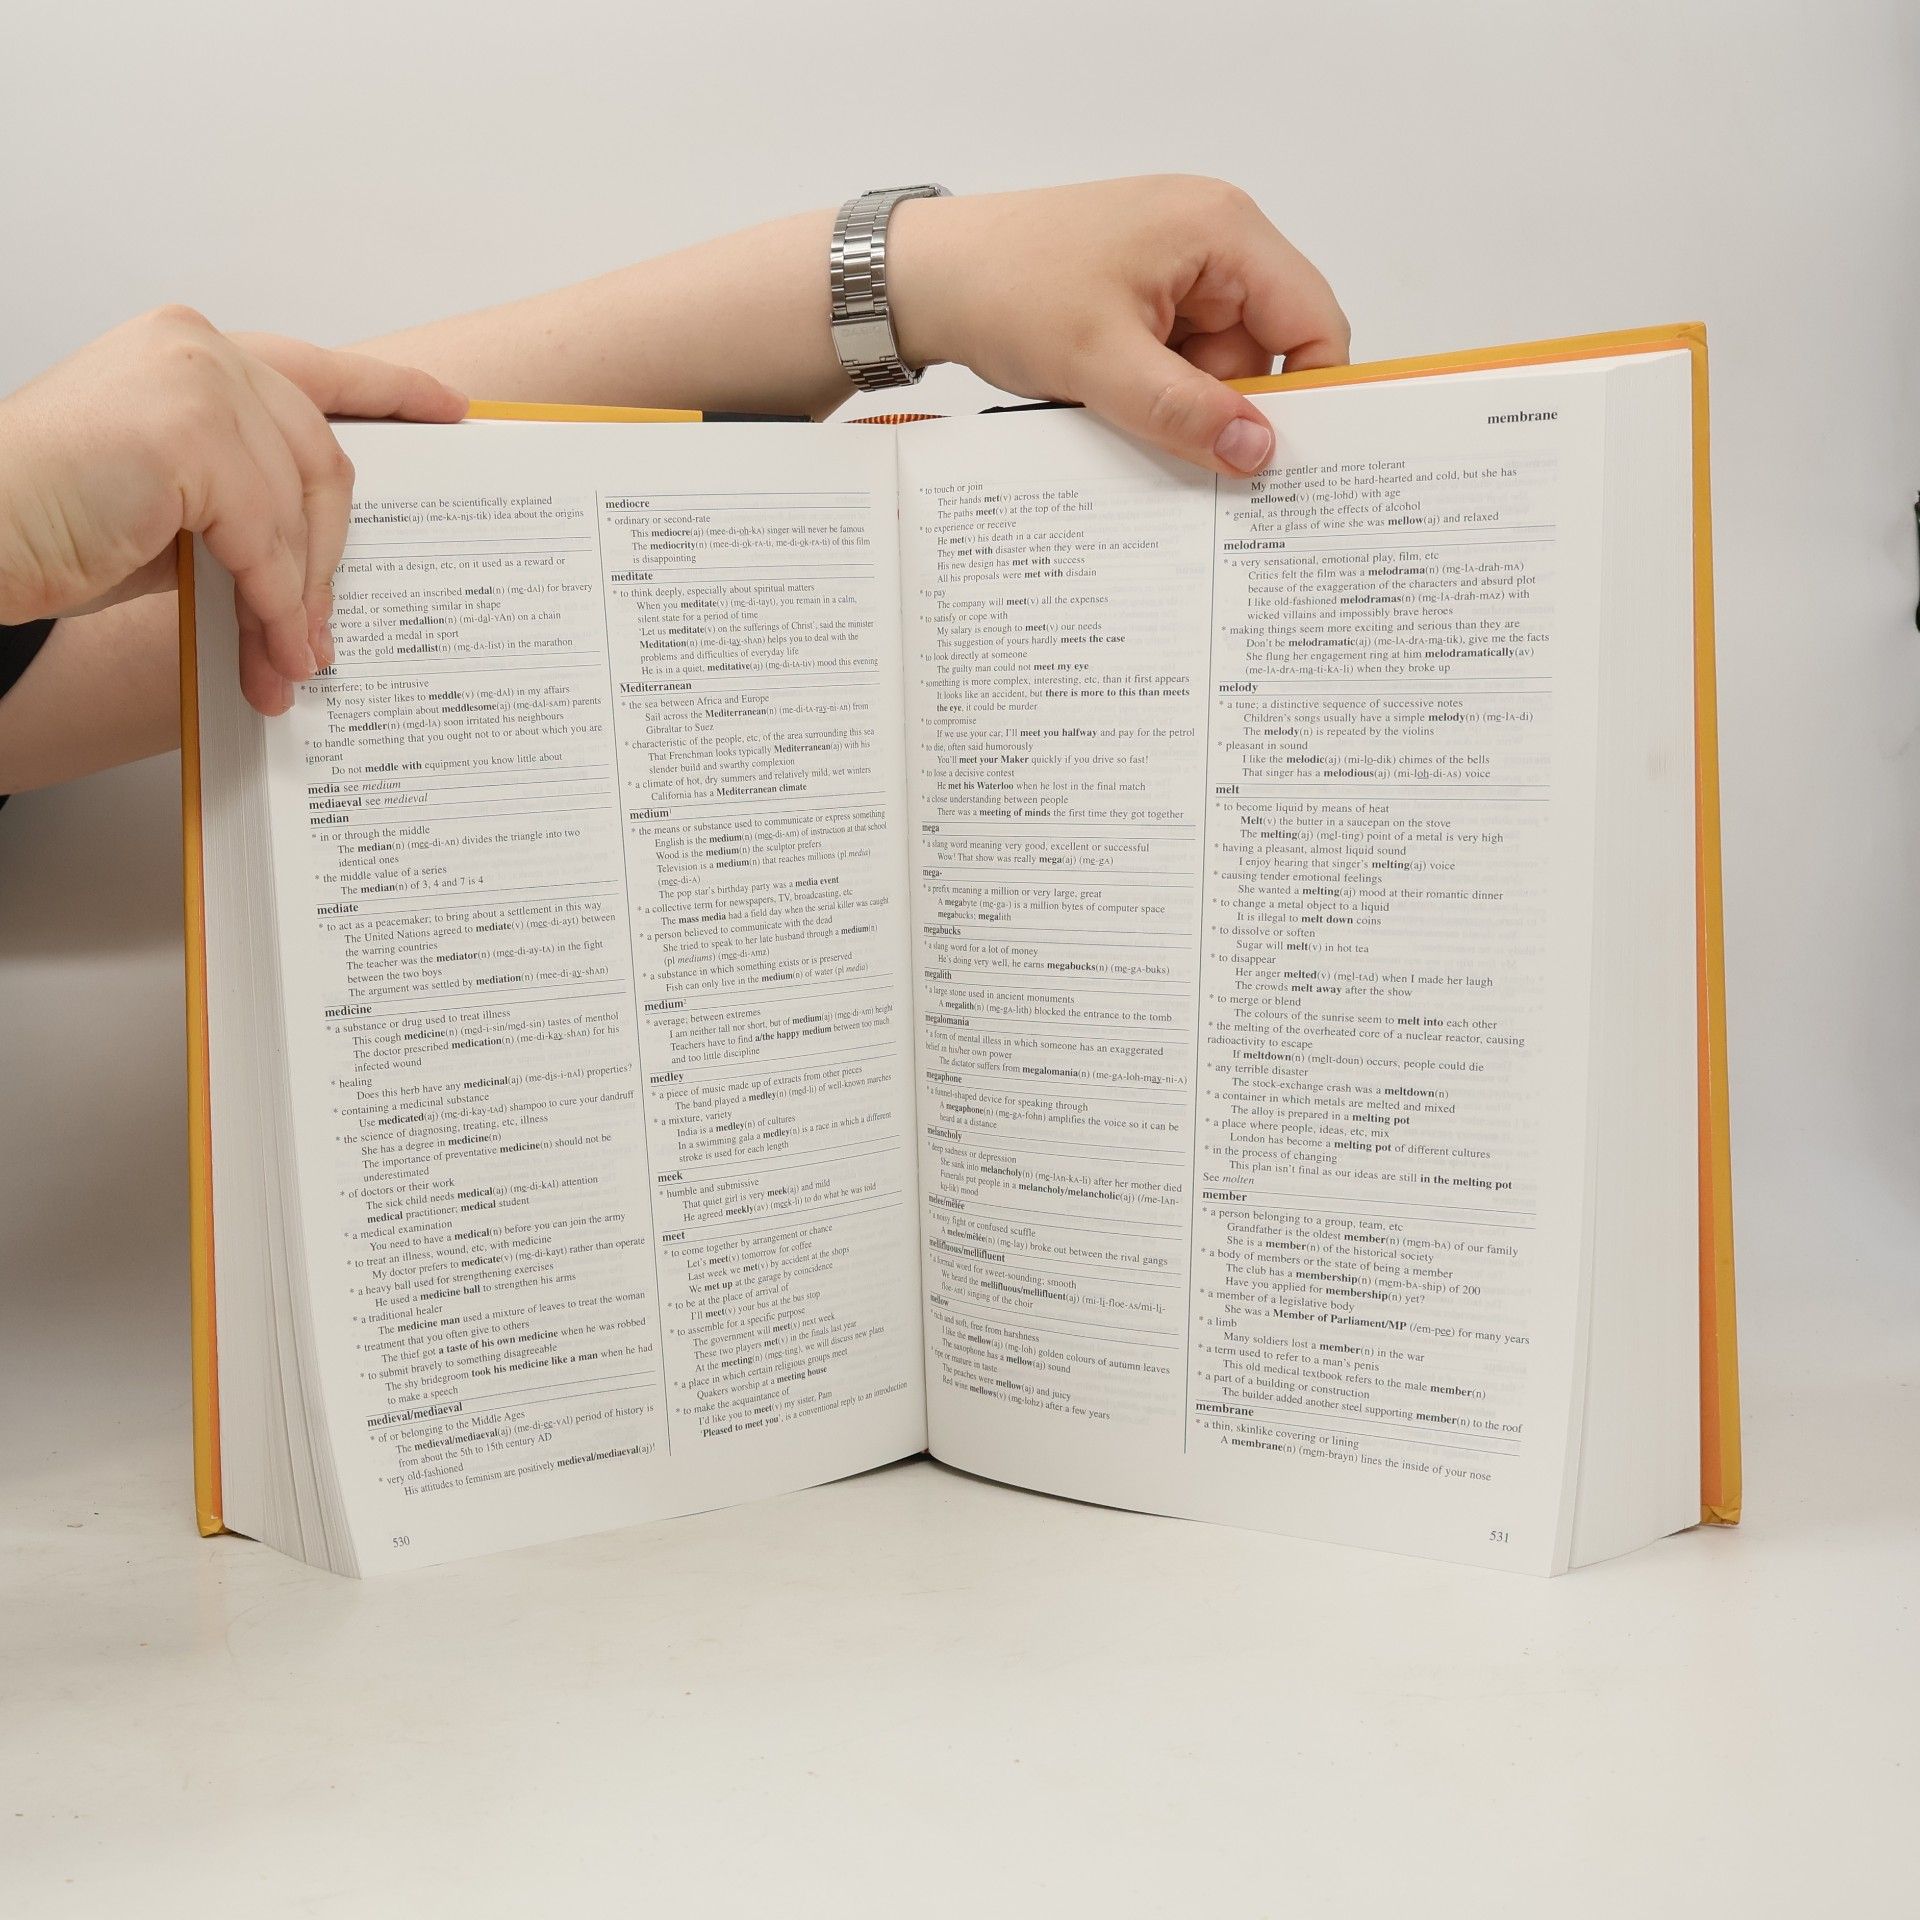 at the universe can be scientifically explained
mechanistic(aj) (me-kA-nis-tik) idea about the origins
of metal with a design, etc, on it used as a reward or
soldier received an inscribed medal(n) (me-dAl) for bravery
medal, or something similar in shape
wore a silver medallion(n) (mi-dal-yAn) on a chain
awarded a medal in sport
was the gold medallist(n) (me-dA-list) in the marathon
* to interfere; to be intrusive
My nosy sister likes to meddle(v) (me-dAl) in my affairs
Teenagers complain about meddlesome(aj) (me-dAl-sAm) parents
The meddler(n) (med-lA) soon irritated his neighbours
* to handle something that you ought not to or about which you are
ignorant
Do not meddle with equipment you know little about
media see medium
mediaeval see medieval
median
* in or through the middle
The median(n) (mee-di-An) divides the triangle into two
identical ones
* the middle value of a series
The median(n) of 3, 4 and 7 is 4
mediate
* to act as a peacemaker; to bring about a settlement in this way
The United Nations agreed to mediate(v) (mee-di-ayt) between
the warring countries
The teacher was the mediator(n) (mee-di-ay-tA) in the fight
between the two boys
The argument was settled by mediation(n) (mee-di-ay-shAn)
medicine
* a substance or drug used to treat illness
This cough medicine(n) (med-i-sin/med-sin) tastes of menthol
The doctor prescribed medication(n) (me-di-kay-shAn) for his
infected wound
* healing
Does this herb have any medicinal(aj) (me-dis-i-nAl) properties?
* containing a medicinal substance
Use medicated(aj) (me-di-kay-tAd) shampoo to cure your dandruff
* the science of diagnosing, treating, etc, illness
She has a degree in medicine(n)
The importance of preventative medicine(n) should not be
underestimated
* of doctors or their work
The sick child needs medical(aj) (me-di-kAl) attention
medical practitioner; medical student
* a medical examination
You need to have a medical(n) before you can join the army
* to treat an illness, wound, etc, with medicine
My doctor prefers to medicate(v) (me-di-kayt) rather than operate
* a heavy ball used for strengthening exercises
He used a medicine ball to strengthen his arms
* a traditional healer
The medicine man used a mixture of leaves to treat the woman
* treatment that you often give to others
The thief got a taste of his own medicine when he was robbed
* to submit bravely to something disagreeable
The shy bridegroom took his medicine like a man when he had
to make a speech
medieval/mediaeval
* of or belonging to the Middle Ages
The medieval/mediaeval(aj) (me-di-ee-vAl) period of history is
from about the 5th to 15th century AD
* very old-fashioned
His attitudes to feminism are positively medieval/mediaeval(aj)!
530
mediocre
* ordinary or second-rate
This mediocre(aj) (mee-di-oh-kA) singer will never be famous
The mediocrity(n) (mee-di-ok-rA-ti, me-di-ok-rA-ti) of this film
is disappointing
meditate
* to think deeply, especially about spiritual matters
When you meditate(v) (me-di-tayt), you remain in a calm,
silent state for a period of time
'Let us meditate(v) on the sufferings of Christ', said the minister
Meditation(n) (me-di-tay-shAn) helps you to deal with the
problems and difficulties of everyday life
He is in a quiet, meditative(aj) (me-di-tA-tiv) mood this evening
Mediterranean
* the sea between Africa and Europe
Sail across the Mediterranean(n) (me-di-tA-ray-ni-An) from
Gibraltar to Suez
* characteristic of the people, etc, of the area surrounding this sea
That Frenchman looks typically Mediterranean(aj) with his
slender build and swarthy complexion
* a climate of hot, dry summers and relatively mild, wet winters
California has a Mediterranean climate
medium¹
* the means or substance used to communicate or express something
English is the medium(n) (mee-di-Am) of instruction at that school
Wood is the medium(n) the sculptor prefers
Television is a medium(n) that reaches millions (pl media)
(mee-di-A)
The pop star's birthday party was a media event
* a collective term for newspapers, TV, broadcasting, etc
The mass media had a field day when the serial killer was caught
* a person believed to communicate with the dead
She tried to speak to her late husband through a medium(n)
(pl mediums) (mee-di-Amz)
* a substance in which something exists or is preserved
Fish can only live in the medium(n) of water (pl media)
medium²
* average; between extremes
I am neither tall nor short, but of medium(aj) (mee-di-Am) height
Teachers have to find a/the happy medium between too much
and too little discipline
medley
* a piece of music made up of extracts from other pieces
The band played a medley(n) (med-li) of well-known marches
* a mixture, variety
India is a medley(n) of cultures
In a swimming gala a medley(n) is a race in which a different
stroke is used for each length
meek
* humble and submissive
That quiet girl is very meek(aj) and mild
He agreed meekly(av) (meek-li) to do what he was told
meet
* to come together by arrangement or chance
Let's meet(v) tomorrow for coffee
Last week we met(v) by accident at the shops
We met up at the garage by coincidence
* to be at the place of arrival of
I'll meet(v) your bus at the bus stop
* to assemble for a specific purpose
The government will meet(v) next week
These two players met(v) in the finals last year
At the meeting(n) (mee-ting), we will discuss new plans
* a place in which certain religious groups meet
Quakers worship at a meeting house
* to make the acquaintance of
I'd like you to meet(v) my sister, Pam
'Pleased to meet you', is a conventional reply to an introduction
membrane
* to touch or join
Their hands met(v) across the table
The paths meet(v) at the top of the hill
* to experience or receive
He met(v) his death in a car accident
They met with disaster when they were in an accident
His new design has met with success
All his proposals were met with disdain
* to pay
The company will meet(v) all the expenses
* to satisfy or cope with
My salary is enough to meet(v) our needs
This suggestion of yours hardly meets the case
* to look directly at someone
The guilty man could not meet my eye
* something is more complex, interesting, etc, than it first appears
It looks like an accident, but there is more to this than meets
the eye, it could be murder
* to compromise
If we use your car, I'll meet you halfway and pay for the petrol
* to die, often said humorously
You'll meet your Maker quickly if you drive so fast!
* to lose a decisive contest
He met his Waterloo when he lost in the final match
* a close understanding between people
There was a meeting of minds the first time they got together
mega
* a slang word meaning very good, excellent or successful
Wow! That show was really mega(aj) (me-gA)
mega-
* a prefix meaning a million or very large, great
A megabyte (me-gA-) is a million bytes of computer space
megabucks; megalith
megabucks
* a slang word for a lot of money
He's doing very well, he earns megabucks(n) (me-gA-buks)
megalith
* a large stone used in ancient monuments
A megalith(n) (me-gA-lith) blocked the entrance to the tomb
megalomania
* a form of mental illess in which someone has an exaggerated
belief in his/her own power
The dictator suffers from megalomania(n) (me-gA-loh-may-ni-A)
megaphone
* a funnel-shaped device for speaking through
A megaphone(n) (me-gA-fohn) amplifies the voice so it can be
heard at a distance
melancholy
* deep sadness or depression
She sank into melancholy(n) (me-lAn-kA-li) after her mother died
Funerals put people in a melancholy/melancholic(aj) (/me-lAn-
ko-lik) mood
melee/mêlée
* a noisy fight or confused scuffle
A melee/mêlée(n) (me-lay) broke out between the rival gangs
mellifluous/mellifluent
* a formal word for sweet-sounding; smooth
We heard the mellifluous/mellifluent(aj) (mi-li-floe-As/mi-li-
floe-Ant) singing of the choir
mellow
* rich and soft, free from harshness
I like the mellow(aj) (me-loh) golden colours of autumn leaves
The saxophone has a mellow(aj) sound
* ripe or mature in taste
The peaches were mellow(aj) and juicy
Red wine mellows(v) (me-lohz) after a few years
come gentler and more tolerant
My mother used to be hard-hearted and cold, but she has
mellowed(v) (me-lohd) with age
* genial, as through the effects of alcohol
After a glass of wine she was mellow(aj) and relaxed
melodrama
* a very sensational, emotional play, film, etc
Critics felt the film was a melodrama(n) (me-lA-drah-mA)
because of the exaggeration of the characters and absurd plot
I like old-fashioned melodramas(n) (me-lA-drah-mAz) with
wicked villains and impossibly brave heroes
* making things seem more exciting and serious than they are
Don't be melodramatic(aj) (me-lA-drA-ma-tik), give me the facts
She flung her engagement ring at him melodramatically(av)
(me-lA-drA-ma-ti-kA-li) when they broke up
melody
* a tune; a distinctive sequence of successive notes
Children's songs usually have a simple melody(n) (me-lA-di)
The melody(n) is repeated by the violins
* pleasant in sound
I like the melodic(aj) (mi-lo-dik) chimes of the bells
That singer has a melodious(aj) (mi-loh-di-As) voice
melt
* to become liquid by means of heat
Melt(v) the butter in a saucepan on the stove
The melting(aj) (mel-ting) point of a metal is very high
* having a pleasant, almost liquid sound
I enjoy hearing that singer's melting(aj) voice
* causing tender emotional feelings
She wanted a melting(aj) mood at their romantic dinner
* to change a metal object to a liquid
It is illegal to melt down coins
* to dissolve or soften
Sugar will melt(v) in hot tea
* to disappear
Her anger melted(v) (mel-tAd) when I made her laugh
The crowds melt away after the show
* to merge or blend
The colours of the sunrise seem to melt into each other
* the melting of the overheated core of a nuclear reactor, causing
radioactivity to escape
If meltdown(n) (melt-doun) occurs, people could die
* any terrible disaster
The stock-exchange crash was a meltdown(n)
* a container in which metals are melted and mixed
The alloy is prepared in a melting pot
* a place where people, ideas, etc, mix
London has become a melting pot of different cultures
* in the process of changing
This plan isn't final as our ideas are still in the melting pot
See molten
member
* a person belonging to a group, team, etc
Grandfather is the oldest member(n) (mem-bA) of our family
She is a member(n) of the historical society
* a body of members or the state of being a member
The club has a membership(n) (mem-bA-ship) of 200
Have you applied for membership(n) yet?
* a member of a legislative body
She was a Member of Parliament/MP (/em-pee) for many years
* a limb
Many soldiers lost a member(n) in the war
* a term used to refer to a man's penis
This old medical textbook refers to the male member(n)
* a part of a building or construction
The builder added another steel supporting member(n) to the roof
membrane
* a thin, skinlike covering or lining
A membrane(n) (mem-brayn) lines the inside of your nose
531